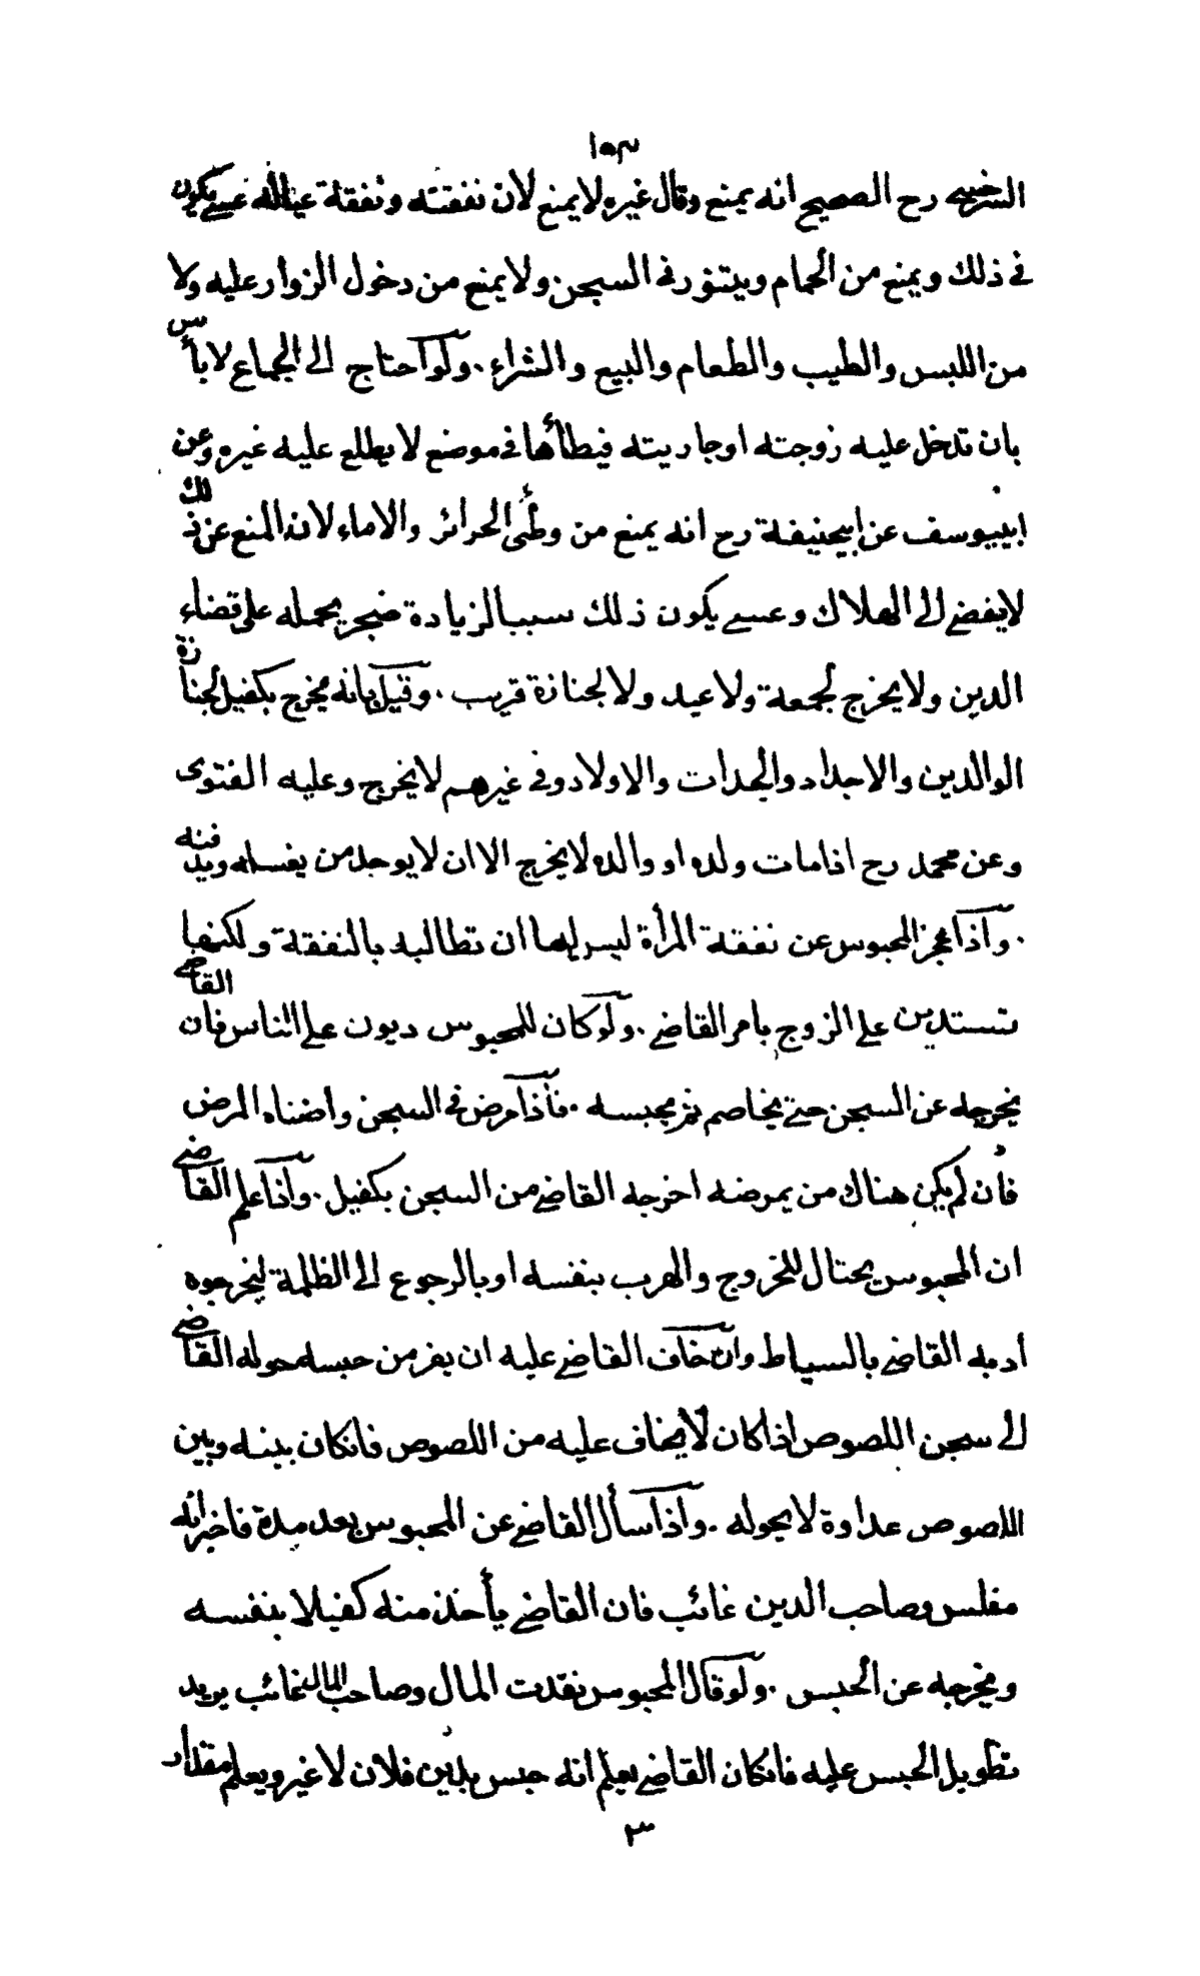 ١٥٣
السرخسي رح الصحيح انه يمنع وقال غيره لا يمنع لان نفقته ونفقة عياله عسى يكون
في ذلك ويمنع من الحمام ويتنور في السجن ولا يمنع من دخول الزوار عليه ولا
من اللبس والطيب والطعام والبيع والشراء . ولو احتاج الى الجماع لا بأس
بان تدخل عليه زوجته او جاريته فيطأها في موضع لا يطلع عليه غيره وعن
ابي يوسف عن ابيحنيفة رح انه يمنع من وطئ الحرائر والاماء لان المنع عن ذلك
لا يفضي الى الهلاك وعسى يكون ذلك سببا لزيادة ضجر يحمله على قضاء
الدين ولا يخرج لجمعة ولا عيد ولا لجنازة قريب . وقيل بانه يخرج بكفيل لجنازة
الوالدين والاجداد والجدات والاولاد وفي غيرهم لا يخرج وعليه الفتوى
وعن محمد رح اذا مات ولده او والده لا يخرج الا ان لا يوجد من يغسله ويدفنه
. واذا عجز المحبوس عن نفقة المرأة ليس لها ان تطالبه بالنفقة ولكنها
تستدين على الزوج بامر القاضي . ولو كان للمحبوس ديون على الناس فان القاضي
يخرجه عن السجن حتى يخاصم ثم يحبسه . فاذا مرض في السجن واضناه المرض
فان لم يكن هناك من يمرضه اخرجه القاضي من السجن بكفيل . واذا علم القاضي
ان المحبوس يحتال للخروج والهرب بنفسه او بالرجوع الى الظلمة ليخرجوه
ادبه القاضي بالسياط وان خاف القاضي عليه ان يفر من حبسه حوله القاضي
الى سجن اللصوص اذا كان لا يخاف عليه من اللصوص فانكان بينه وبين
اللصوص عداوة لا يحوله . واذا سأل القاضي عن المحبوس بعد مدة فاخبر انه
مفلس وصاحب الدين غائب فان القاضي يأخذ منه كفيلا بنفسه
ويخرجه عن الحبس . ولو قال المحبوس نقدت المال وصاحب المال غائب يريد
تطويل الحبس عليه فانكان القاضي يعلم انه حبس بدين فلان لا غير ويعلم مقدار
٣